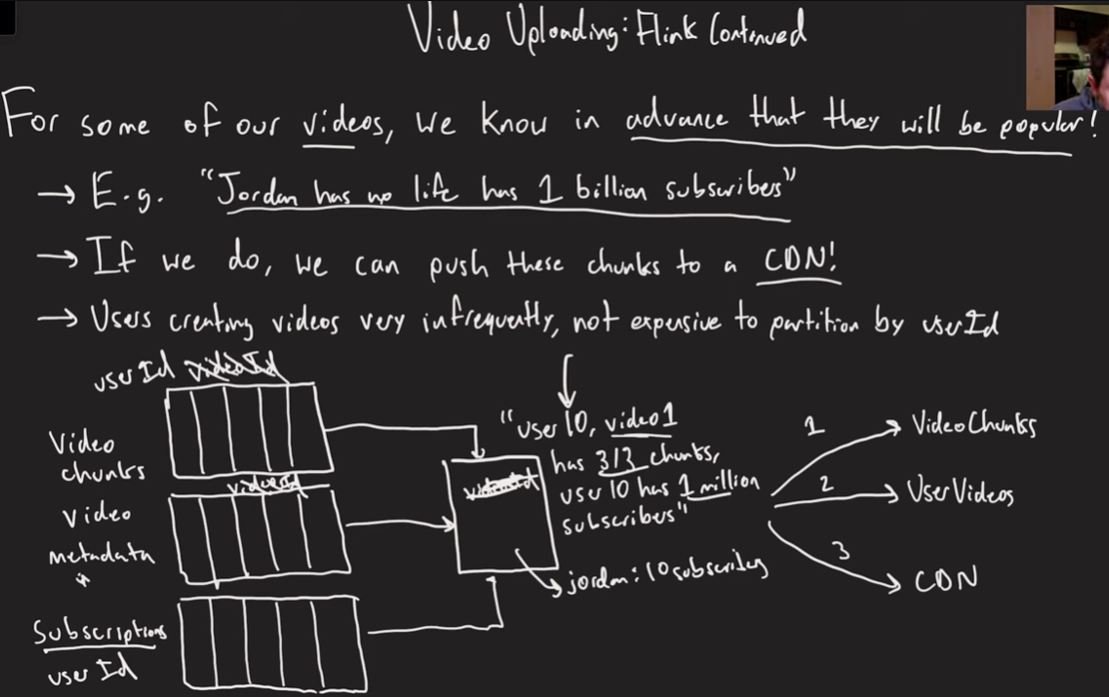 Video Uploading: Flink Continued
For some of our videos, we know in advance that they will be popular!
→ E.g. "Jordan has no life has 1 billion subscribers"
→ If we do, we can push these chunks to a CDN!
→ Users creating videos very infrequently, not expensive to partition by userId
userId videoId
Video
chunks
videoId
Video
metadata
Subscriptions
user Id
"user 10, video1
has 3/3 chunks,
user 10 has 1 million
subscribers"
jordan: 10 subscribers
1
VideoChunks
2
UserVideos
3
CDN